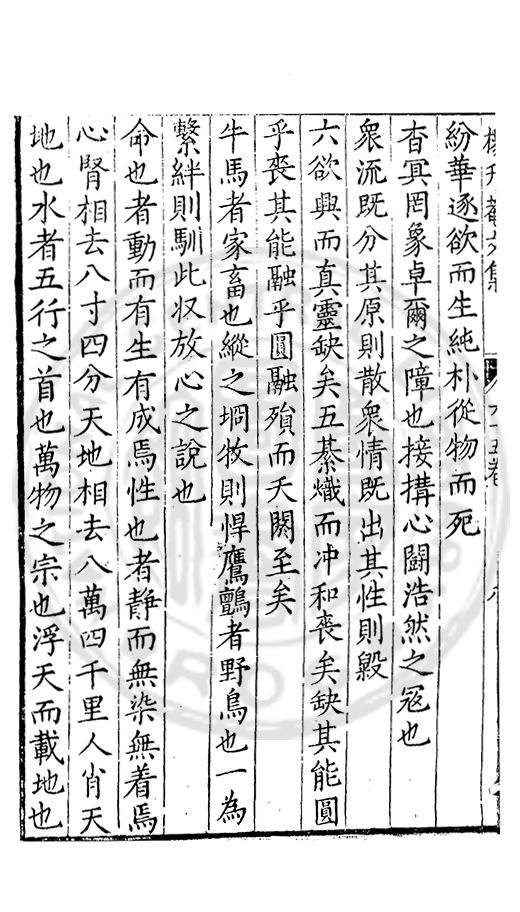 紛華逐欲而生純朴從物而死
杳冥罔象卓爾之障也接搆心鬪浩然之寇也
衆流既分其原則散衆情既出其性則毀
六欲興而真靈缺矣五綦熾而冲和喪矣缺其能圓
乎喪其能融乎圓融殰而夭閼至矣
牛馬者家畜也縱之坰牧則悍鷹鸇者野鳥也一為
繫絆則馴此収放心之說也
命也者動而有生有成焉性也者静而無染無着焉
心腎相去八寸四分天地相去八萬四千里人肖天
地也水者五行之首也萬物之宗也浮天而載地也